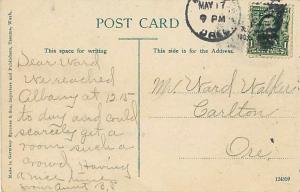 POST CARD
MAY 17
9 PM
ORE.
This space for writing
This side is for the Address.
Dear Ward
We reached
Albany at 12.15
to day and could
scarcely get a
room such a
crowd Having
a nice time
from Aunt
Mr Ward Walker
Carlton
Ore.
Made in Germany
Importers and Publishers, Tacoma, Wash.